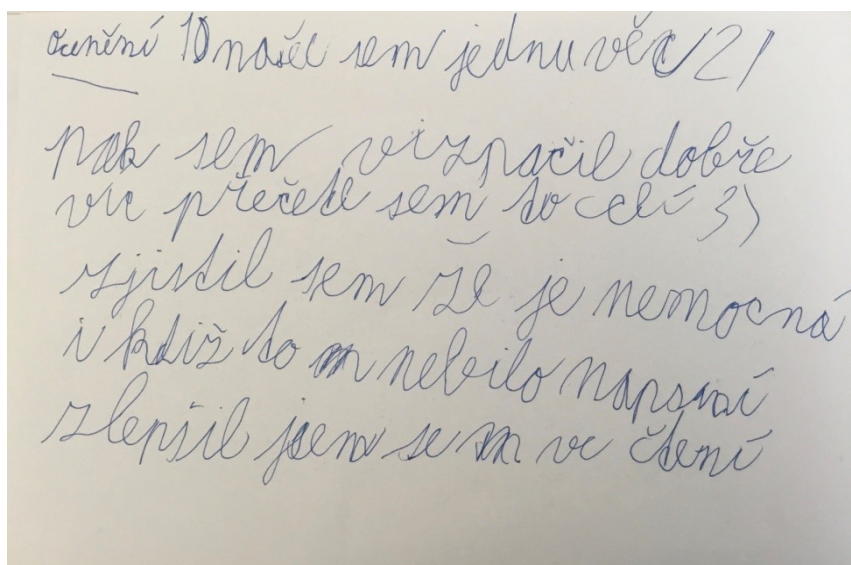 ocenění 1) našel sem jednu věc 2)
pak sem viznačil dobře
víc přečetl sem to celí 3)
zjistil sem že je nemocná
i kdiž to nebilo napsaní
zlepšil jsem se ve čtení